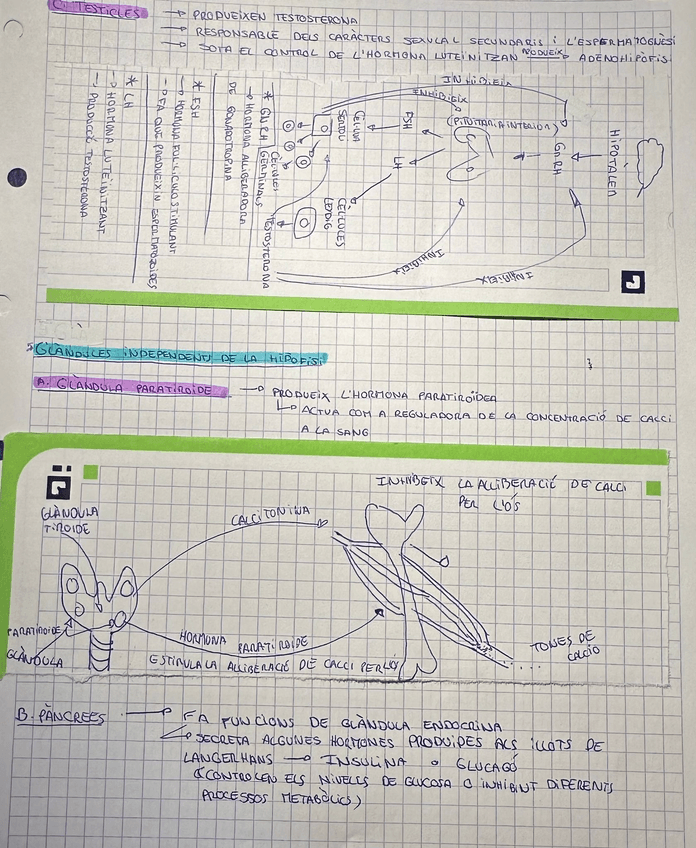 C. TESTICLES
→ PRODUEIXEN TESTOSTERONA
→ RESPONSABLE DELS CARÀCTERS SEXUCAL SECUNDARIS i L'ESPERMATOGNÈSI
→ SOTA EL CONTROL DE L'HORMONA LUTEINITZAN PRODUEIX ADENOHIPÒFISI
HIPOTÀLEM
GnRH
(PITUITARIA INTERIOR)
INHIBEIX
INHIBEIX
FSH
LH
CÈL·LULES LEYDIG
CÈLULES GERMINALS
TESTOSTERONA
INHIBEIX
INHIBEIX
* GnRH
→ HORMONA ALLIBERADORA
DE GONADOTROPINA
* FSH
→ HORMONA FOL·LICULOSTIMULANT
→ FA QUE PRODUEIXIN ESPERMATOZOIDES
* LH
→ HORMONA LUTEÏNITZANT
→ PRODUCCIÓ TESTOSTERONA
GLÀNDULES INDEPENDENTS DE LA HIPÒFISI
A. GLÀNDULA PARATIROIDE
→ PRODUEIX L'HORMONA PARATIROÏDEA
↳ ACTUA COM A REGULADORA DE LA CONCENTRACIÓ DE CALCI
A LA SANG
INHIBEIX LA ALLIBERACIÓ DE CALCI
PER L'ÓS
GLÀNDULA
TIROIDE
CALCITONINA
PARATIROIDE
GLÀNDULA
HORMONA PARATIROIDE
ESTIMULA LA ALLIBERACIÓ DE CALCI PER L'ÓS
TONES DE
CALCIO
B. PÀNCREES
→ FA FUNCIONS DE GLÀNDULA ENDOCRINA
↳ SECRETA ALGUNES HORMONES PRODUIDES ALS ILLOTS DE
LANGERHANS → INSULINA o GLUCAGÓ
(CONTROLEN ELS NIVELLS DE GLUCOSA O INHIBINT DIFERENTS
PROCESSOS METABÒLICS)